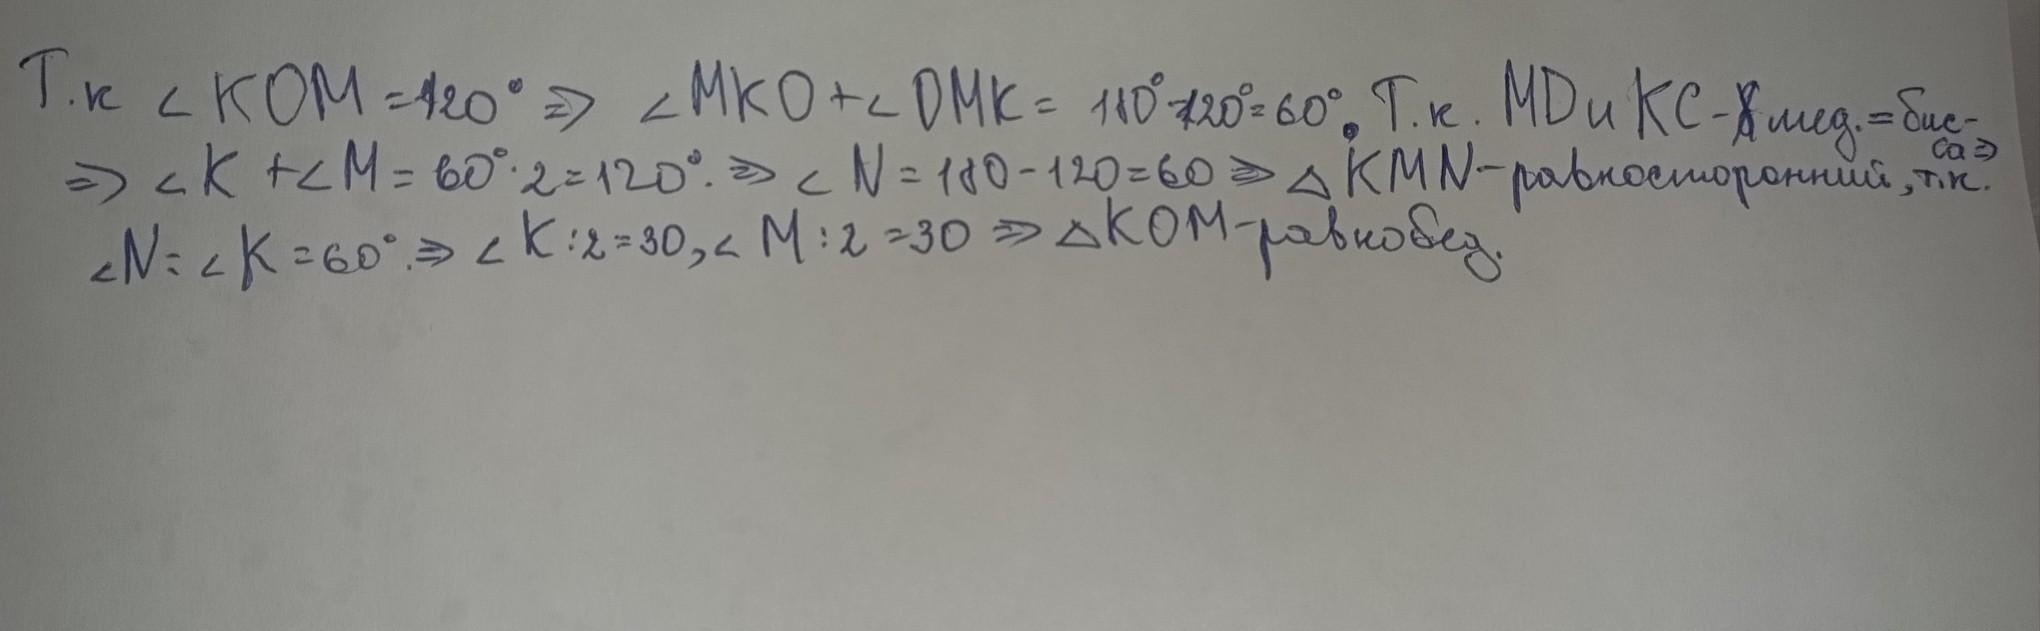 Т.к ∠KOM=120° ⇒ ∠MKO+∠OMK= 180°-120°=60°. Т.к. MD и KC- мед.=бис-
са⇒
⇒ ∠K +∠M= 60°·2=120°. ⇒ ∠N=180-120=60 ⇒ △KMN-равносторонний, т.к.
∠N=∠K=60°.⇒ ∠K:2=30, ∠M:2=30 ⇒ △KOM-равнобед.